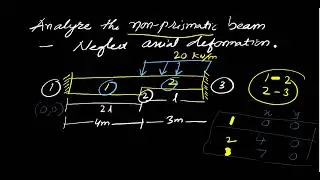 Analyze the non-prismatic beam
— Neglect axial deformation.
20 kN/m
1 1 2 3
2
(0,0) 2I I
4m 3m
1-2
2-3
x y
1 0 0
2 4 0
3 7 0